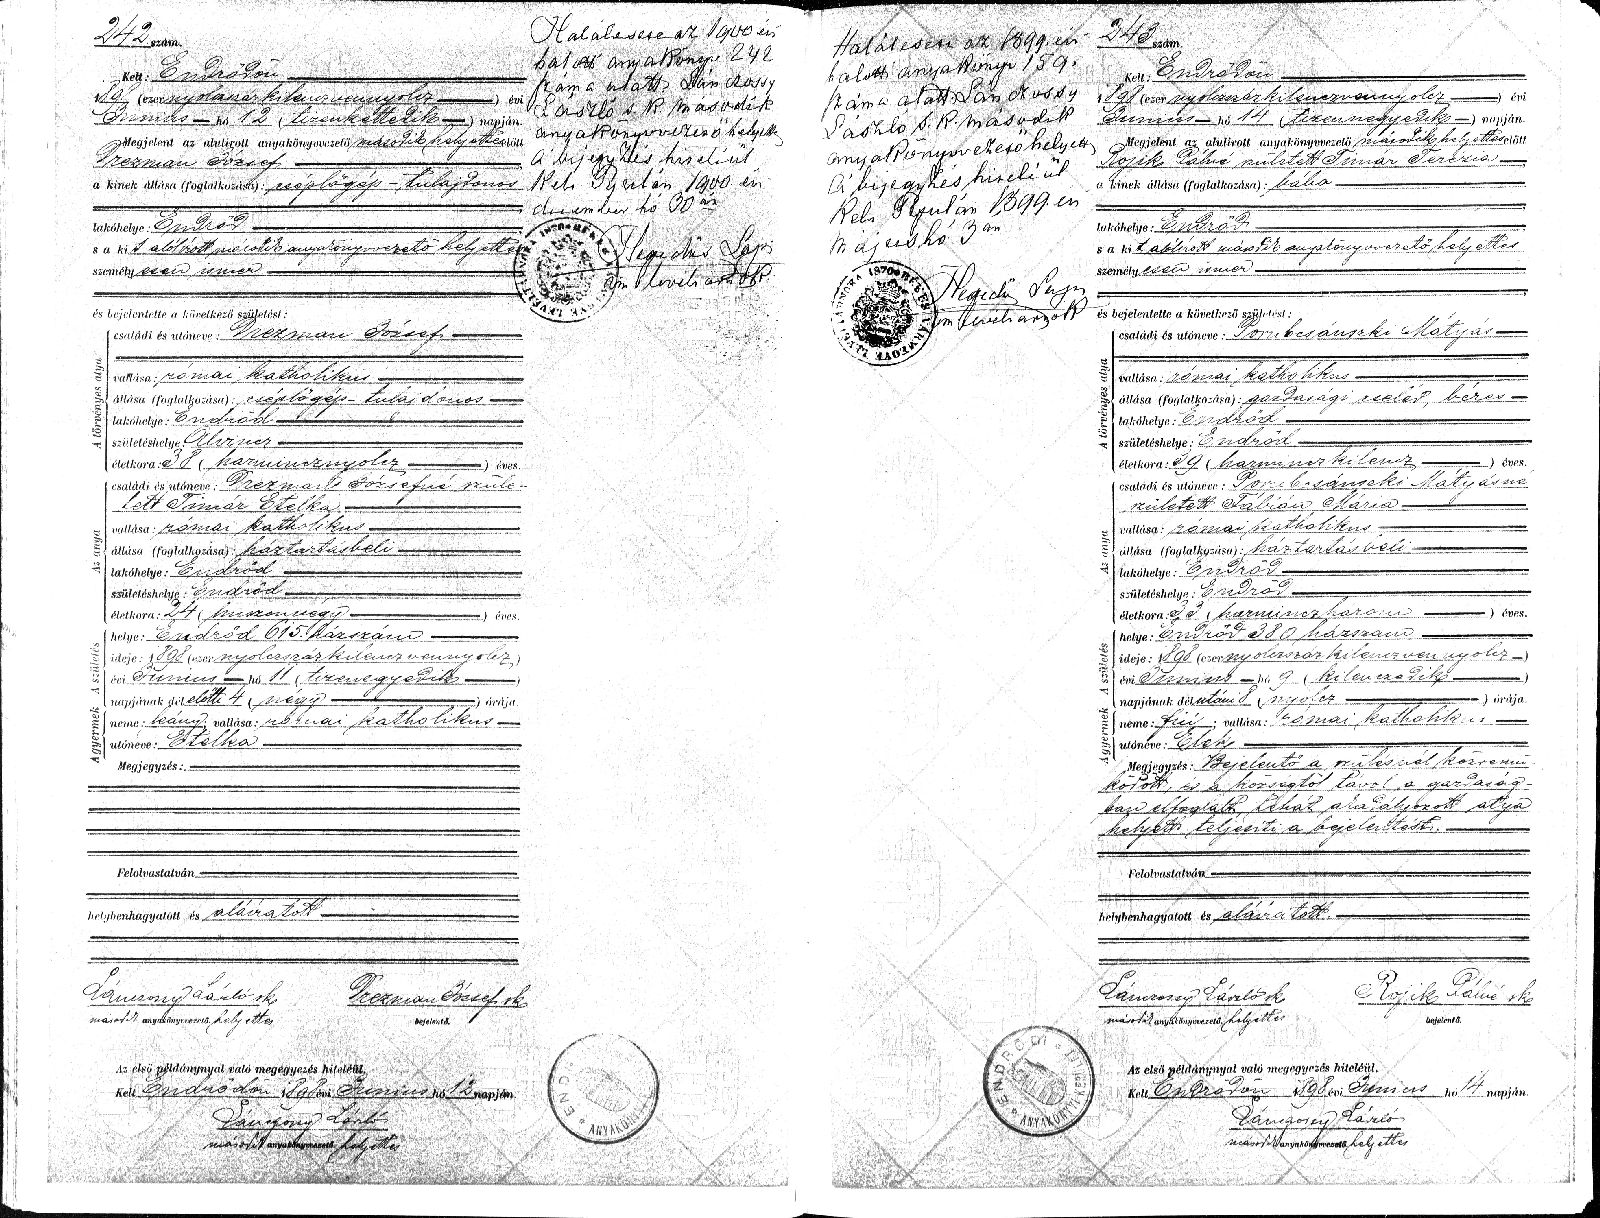 242 szám.
Kelt: Endrődön
1898 (ezer nyolcszázkilenczvennyolcz) évi
Junius hó 12 (tizenkettedik) napján.
Megjelent az alulirott anyakönyvezető második helyettes előtt
Drezman József
a kinek állása (foglalkozása): cséplőgép-tulajdonos
lakóhelye: Endrőd
s a kit alólirott második anyakönyvvezető helyettes
személyesen ismer
és bejelentette a következő születést:
A törvényes atya
családi és utóneve: Drezman József
vallása: római katholikus
állása (foglalkozása): cséplőgép-tulajdonos
lakóhelye: Endrőd
születéshelye:
életkora: 38 (harmincznyolcz) éves.
Az anya
családi és utóneve: Drezman Józsefné szüle-
tett Timár Etelka
vallása: római katholikus
állása (foglalkozása): háztartásbeli
lakóhelye: Endrőd
születéshelye: Endrőd
életkora: 24 (huszonnégy) éves.
A születés
helye: Endrőd 615. házszám
ideje: 1898 (ezer nyolcszázkilenczvennyolcz)
évi Junius hó 11 (tizenegyedik)
napjának délelőtti 4 (négy) órája.
A gyermek
neme: leány vallása: római katholikus
utóneve: Etelka
Megjegyzés:
Felolvastatván
helybenhagyatott és aláiratott
Lánczossy László sk
második anyakönyvvezető helyettes
Drezman József sk
bejelentő.
Az első példánynyal való megegyezés hiteléül.
Kelt Endrődön 1898 évi Junius hó 12 napján.
Lánczossy László
második anyakönyvvezető helyettes
ANYAKÖNYV
Halálesete az 1900 évi
halotti anyakönyv 242
száma alatt Lánczossy
László s. k. második
anyakönyvvezető helyettes
A bijegyzés hiteléül
Kelt Gyulán 1900 évi
december hó 30 án
Hegedűs Lajos
alm. levéltárnok
Halálesete az 1899. évi
halotti anyakönyv 159.
száma alatt Lánczossy
László s. k. második
anyakönyvvezető helyettes
A bijegyzés hiteléül
Kelt Gyulán 1899 évi
május hó 3 án
Hegedűs Lajos
alm. levéltárnok
BÉKÉS VÁRMEGYE LEVÉLTÁRNOKA 1870
243 szám.
Kelt: Endrődön
1898 (ezer nyolcszázkilenczvennyolcz) évi
Junius hó 14 (tizennegyedik) napján.
Megjelent az alulirott anyakönyvezető második helyettes előtt
Rojik Pálné született Timár Terézia
a kinek állása (foglalkozása): bába
lakóhelye: Endrőd
s a kit alólirott második anyakönyvvezető helyettes
személyesen ismer
és bejelentette a következő születést:
A törvényes atya
családi és utóneve: Porubcsánszki Mátyás
vallása: római katholikus
állása (foglalkozása): gazdasági cseléd, béres
lakóhelye: Endrőd
születéshelye: Endrőd
életkora: 39 (harminczkilencz) éves.
Az anya
családi és utóneve: Porubcsánszki Mátyásné
született Fábián Mária
vallása: római katholikus
állása (foglalkozása): háztartásbeli
lakóhelye: Endrőd
születéshelye: Endrőd
életkora: 33 (harminczhárom) éves.
A születés
helye: Endrőd 380 házszám
ideje: 1898 (ezer nyolcszázkilenczvennyolcz)
évi Junius hó 9 (kilenczedik)
napjának délutáni 8 (nyolcz) órája.
A gyermek
neme: fiú; vallása: római katholikus
utóneve: Elek
Megjegyzés: Bejelentő a szülésnél közremü-
ködött, és a községtől távol a gazdaság-
ban elfoglalt, tehát akadályozott atya
helyett teljesiti a bejelentést.
Felolvastatván
helybenhagyatott és aláiratott.
Lánczossy László sk
második anyakönyvvezető helyettes
Rojik Pálné sk
bejelentő.
ENDRŐDI ANYAKÖNYVI KER
Az első példánynyal való megegyezés hiteléül.
Kelt Endrődön 1898 évi Junius hó 14 napján.
Lánczossy László
második anyakönyvvezető helyettes